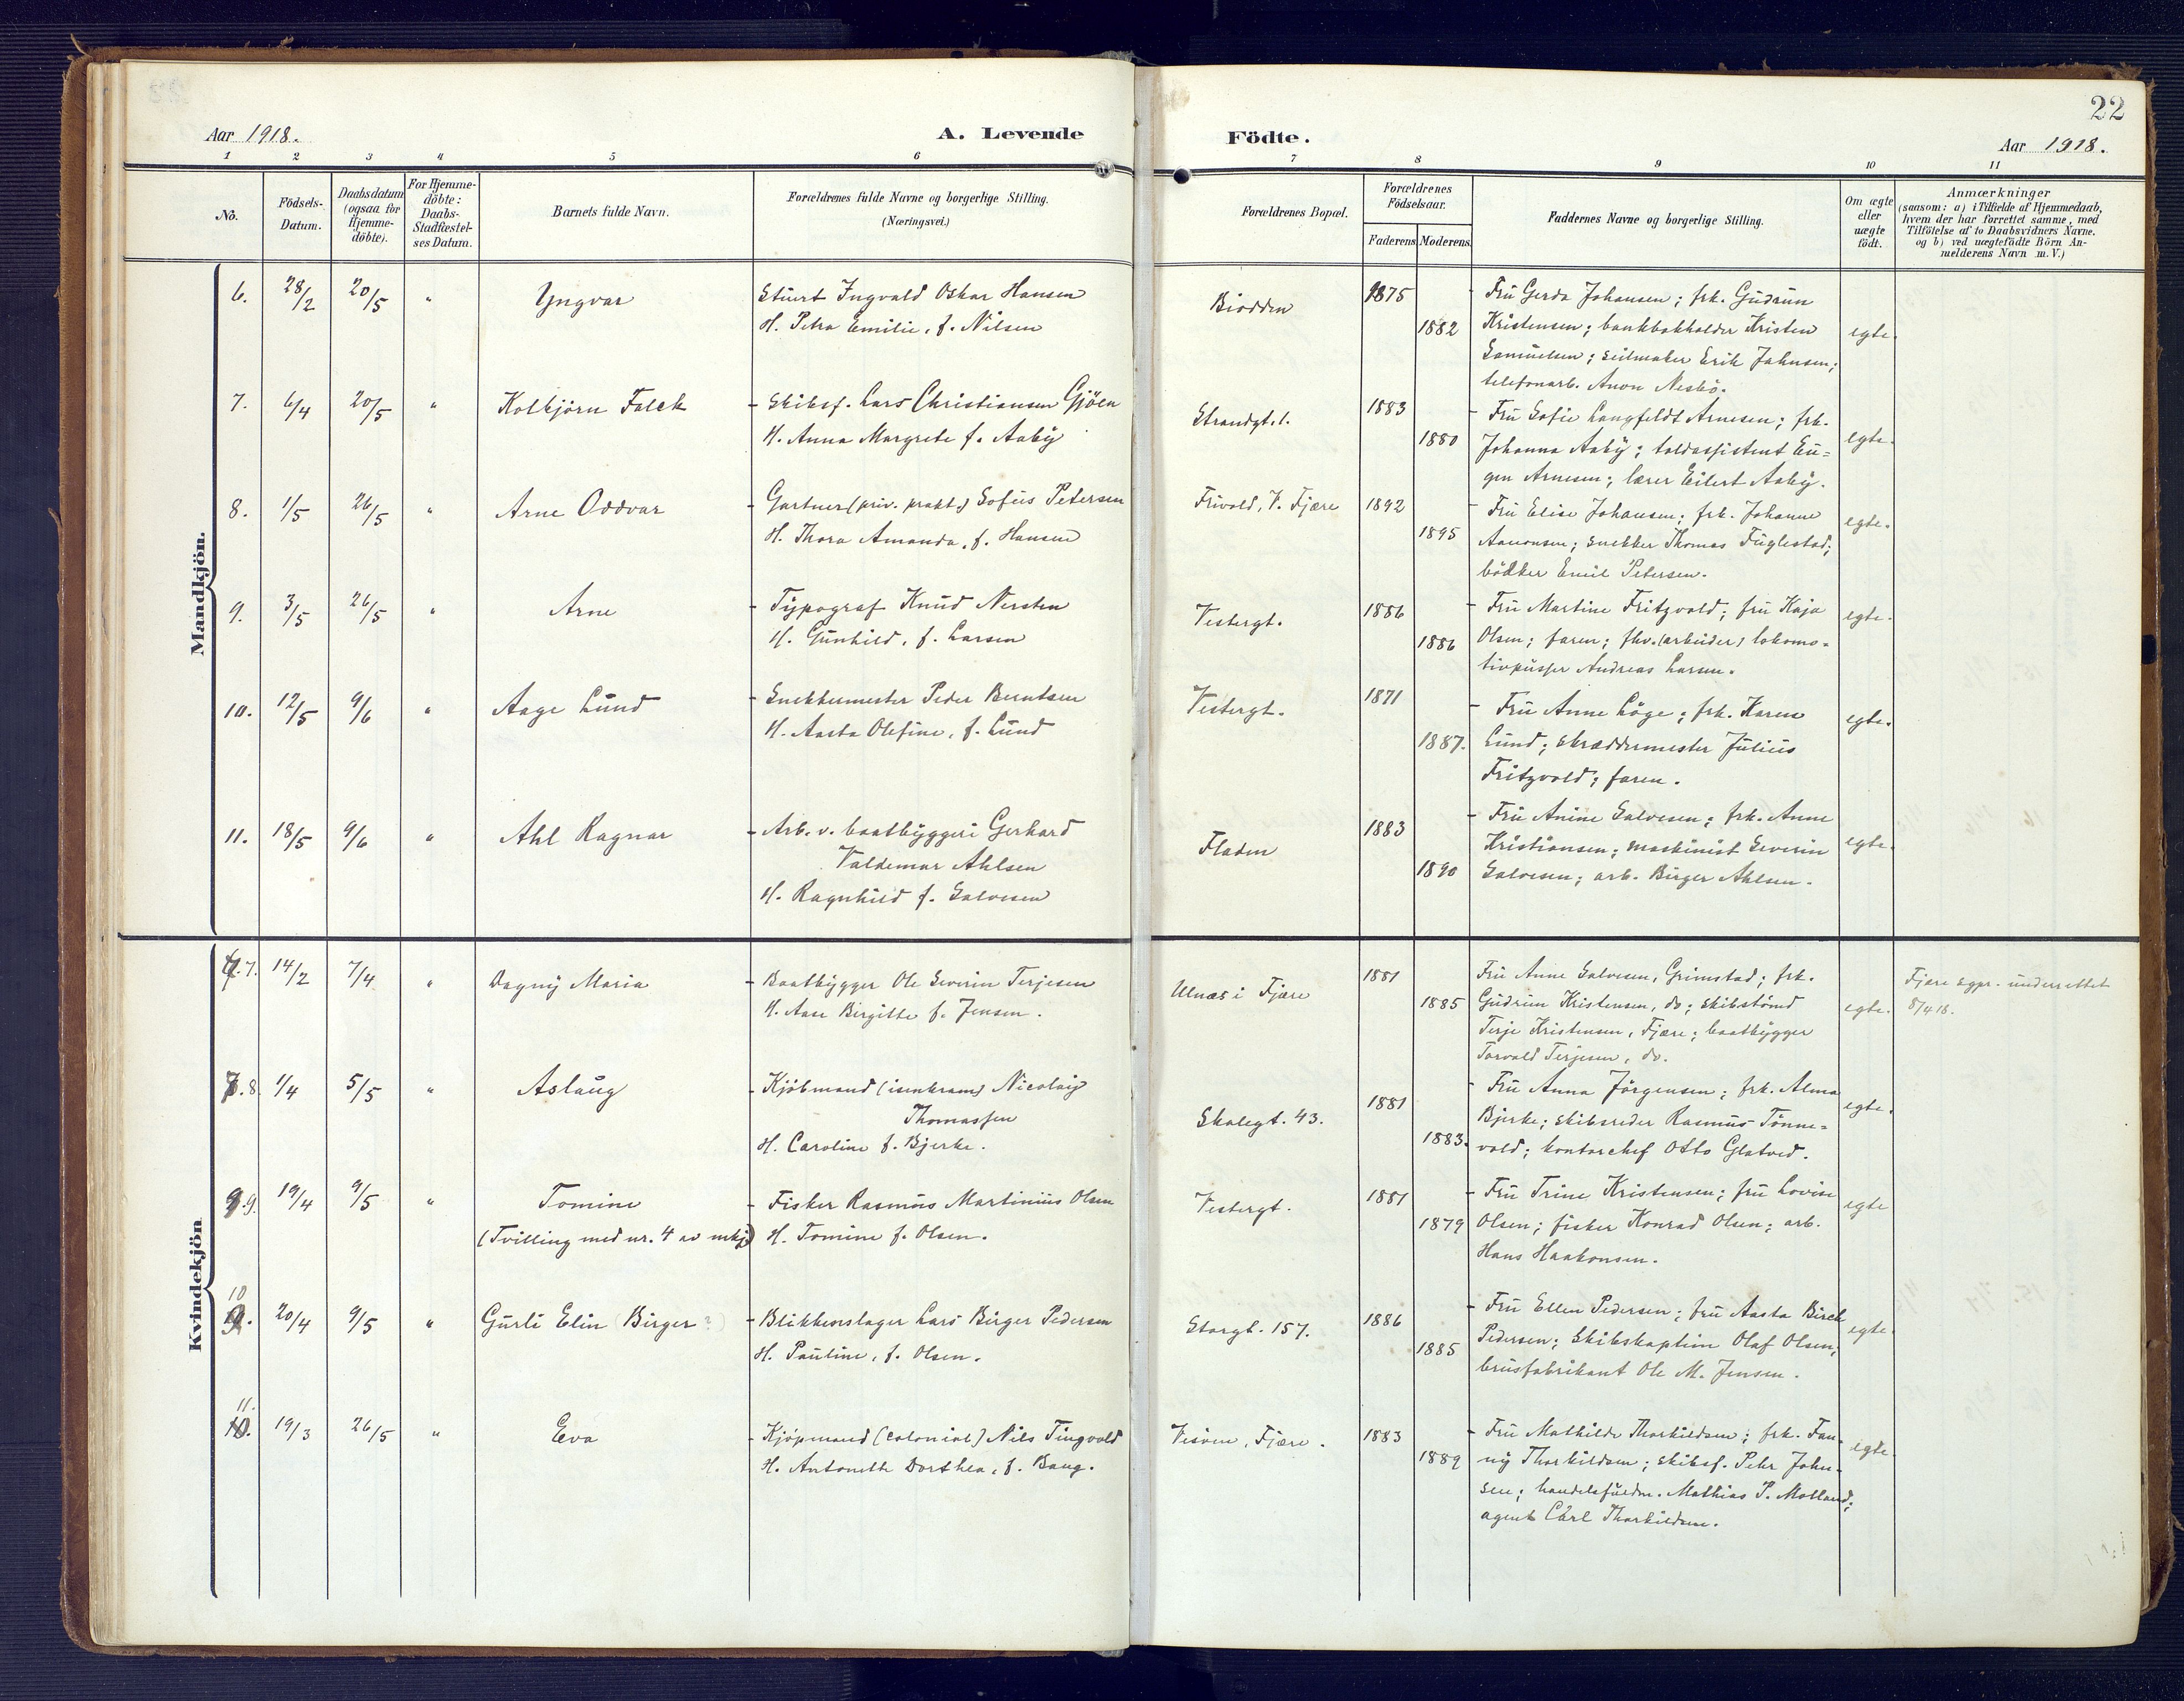 22
Aar 1918.
A. Levende
Födte.
Aar 1918.
1 2 3 4 5 6 7 8 9 10 11
No.
Födsels-
Datum.
Daabsdatum
(ogsaa for
Hjemme-
döbte).
For Hjemme-
döbte:
Daabs-
Stadfæstel-
ses Datum.
Barnets fulde Navn.
Forældrenes fulde Navne og borgerlige Stilling.
(Næringsvei.)
Forældrenes Bopæl.
Forældrenes
Födselsaar.
Faderens Moderens
Faddernes Navne og borgerlige Stilling.
Om ægte
eller
uægte
födt.
Anmærkninger
(saasom: a) i Tilfælde af Hjemmedaab,
hvem der har forrettet samme, med
Tilföielse af to Daabsvidners Navne.
og b) ved uægtefödte Börn An-
melderens Navn m. V.)
Mandkjön.
6. 28/2 20/5 " Yngvar
Stuert Ingvald Oskar Hansen
H. Petra Emilie, f. Nilsen
Biodden
1875
1882
- Fru Gerda Johansen; frk. Gudrun
Kristensen; bankbokholder Kristen
Samuelsen; seilmaker Erik Johnsen;
telefonarb. Anon Nesbö.
egte.
7. 6/4 20/5 " Kolbjörn Falck
- Skibsf. Lars Christiansen Gjöen
H. Anna Margrete f. Aaby
Strandgt. 1.
1883
1880
- Fru Sofie Langfeldt Arnesen; frk.
Johanna Aaby; toldassistent Eu=
gen Arnesen; lærer Eilert Aaby.
egte.
8. 1/5 26/5 " Arne Oddvar
- Gartner (priv. prakt.) Sofus Petersen
H. Thora Amanda, f. Hansen
Frivold, V. Fjære
1892
1895
- Fru Elise Johansen; frk. Johanne
Aanonsen; snekker Thomas Fuglestad;
bödker Emil Petersen.
egte.
9. 3/5 26/5 " Arne
- Typograf Knud Nersten
H. Gunhild, f. Larsen
Vestergt.
1886
1886
- Fru Martine Fritzvold; fru Kaja
Olsen; faren; fhv. (arbeider) lokomo=
tivpusser Andreas Larsen.
egte.
10. 12/5 9/6 " Aage Lund
- Snekkermester Peder Berntsen
H. Aasta Olefine, f. Lund
Vestergt.
1871
1887.
- Fru Anne Löge; frk. Karen
Lund; skræddermester Julius
Fritzvold; faren.
egte.
11. 18/5 9/6 " Ahl Ragnar
- Arb. v. baatbyggeri Gerhard
Valdemar Ahlsen
H. Ragnhild f. Salvesen
Fladen
1883
1890
- Fru Anine Salvesen; frk. Anne
Kristiansen; maskinist Severin
Salvesen; arb. Birger Ahlsen.
egte.
Kvindekjön
7. 14/2 7/4 " Dagny Maria
- Baatbygger Ole Severin Terjesen
H. Aase Birgitte f. Jensen.
Ulnæs i Fjære
1881
1885
Fru Anne Salvesen, Grimstad; frk.
Gudrun Kristensen, do; skibstömd
Terje Kristensen, Fjære; baatbygger
Torvald Terjesen, do.
egte.
Fjære sgpr. underrettet
8/4 18.
8. 1/4 5/5 " Aslaug
- Kjöbmand (isenkram) Nicolaiy
Thomassen
H. Caroline f. Bjerke.
Skolegt. 43.
1881
1883.
- Fru Anna Jörgensen; frk. Alma
Bjerke; skibsreder Rasmus Tönne=
vold; kontorchef Otto Glatved.
egte.
9. 19/4 9/5 " Tomine
(Tvilling med nr. 4 av mkj)
- Fisker Rasmus Martinius Olsen
H. Tomine f. Olsen.
Vestergt.
1881
1879
- Fru Trine Kristensen; fru Lovise
Olsen; fisker Konrad Olsen; arb.
Hans Haakonsen.
egte
10 20/4 9/5 " Gurli Elin (Birger?)
- Blikkenslager Lars Birger Pedersen
H. Pauline, f. Olsen.
Storgt. 157.
1886
1885
- Fru Ellen Pedersen; fru Aasta Birch
Pedersen; Skibskaptein Olaf Olsen;
brusfabrikant Ole M. Jensen.
egte.
11. 19/3 26/5 " Eva
- Kjöpmand (Colonial) Nils Tingvold
H. Antonette Dorthea, f. Baug.
Vesöen, Fjære.
1883
1889
- Fru Mathilde Thorkildsen; frk. Fan-
ny Thorkildsen; skibsf. Peter John-
sen; handelsfuldm. Mathias P. Molland;
agent Carl Thorkildsen.
egte.